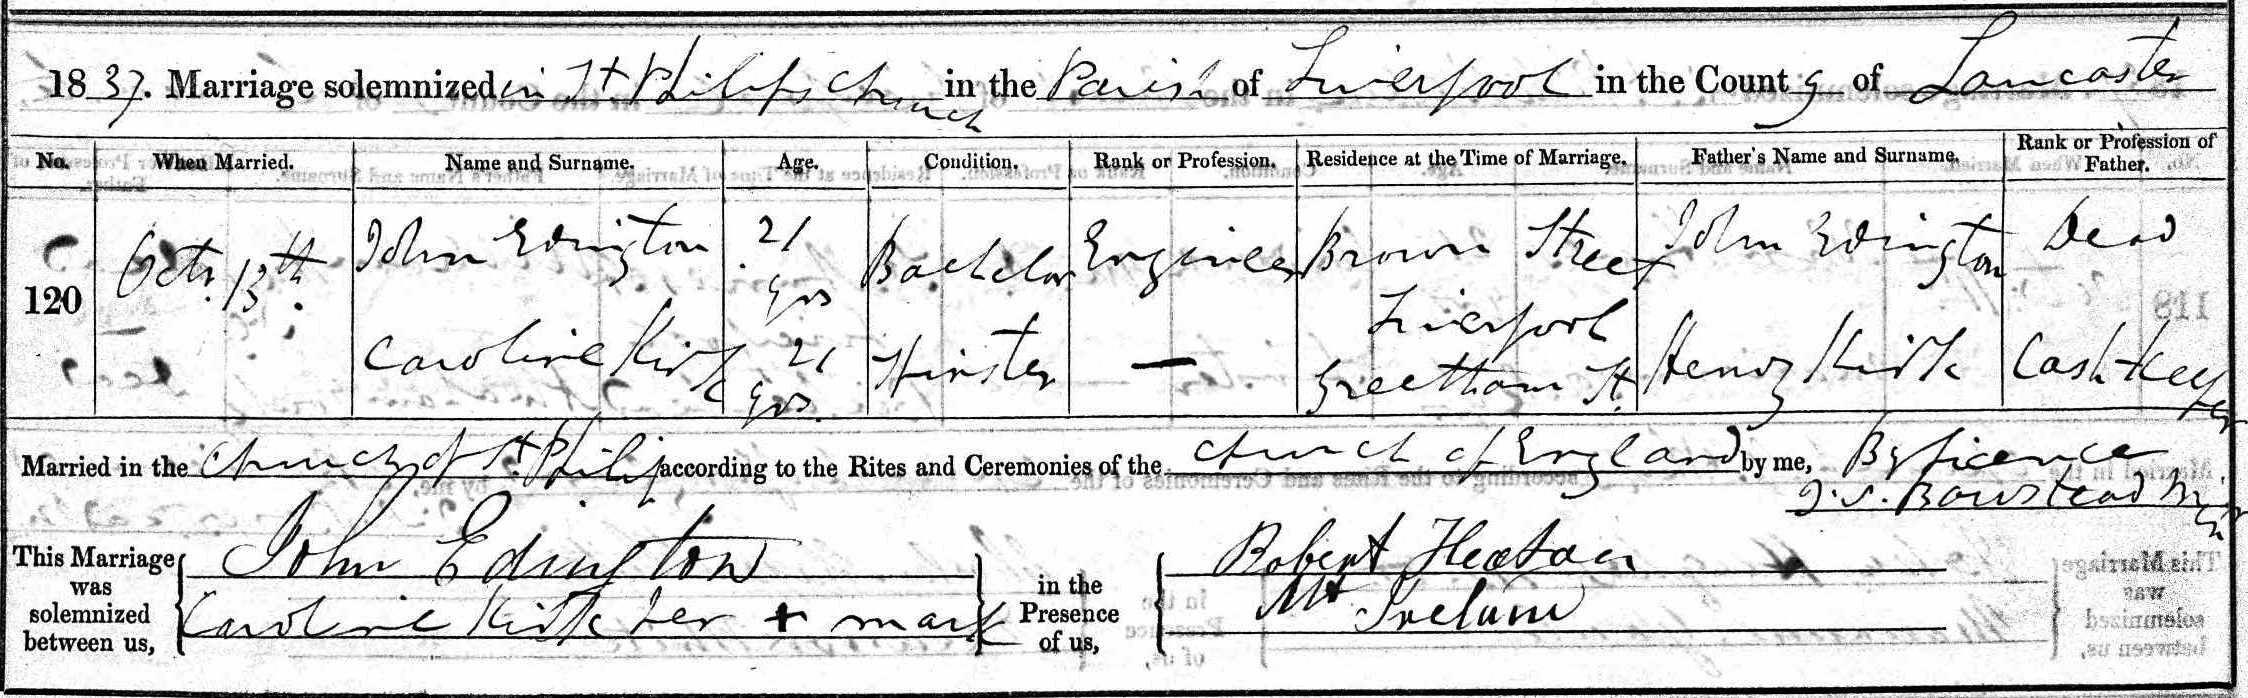 1837. Marriage solemnized in St Philips Church in the Parish of Liverpool in the County of Lancaster
No. When Married. Name and Surname. Age. Condition. Rank or Profession. Residence at the Time of Marriage. Father's Name and Surname. Rank or Profession of Father.
120 Octr. 13th. John Edington 21 yrs Bachelor Engineer Brown Street Liverpool John Edington Dead
Caroline Kirk 21 yrs Spinster — Greetham St. Henry Kirk Cash Keeper
Married in the Church of St Philip according to the Rites and Ceremonies of the Church of England by me, By licence
J. S. Bowstead Minister
This Marriage was solemnized between us, John Edington
Caroline Kirk her + mark
in the Presence of us, Robert Heaton